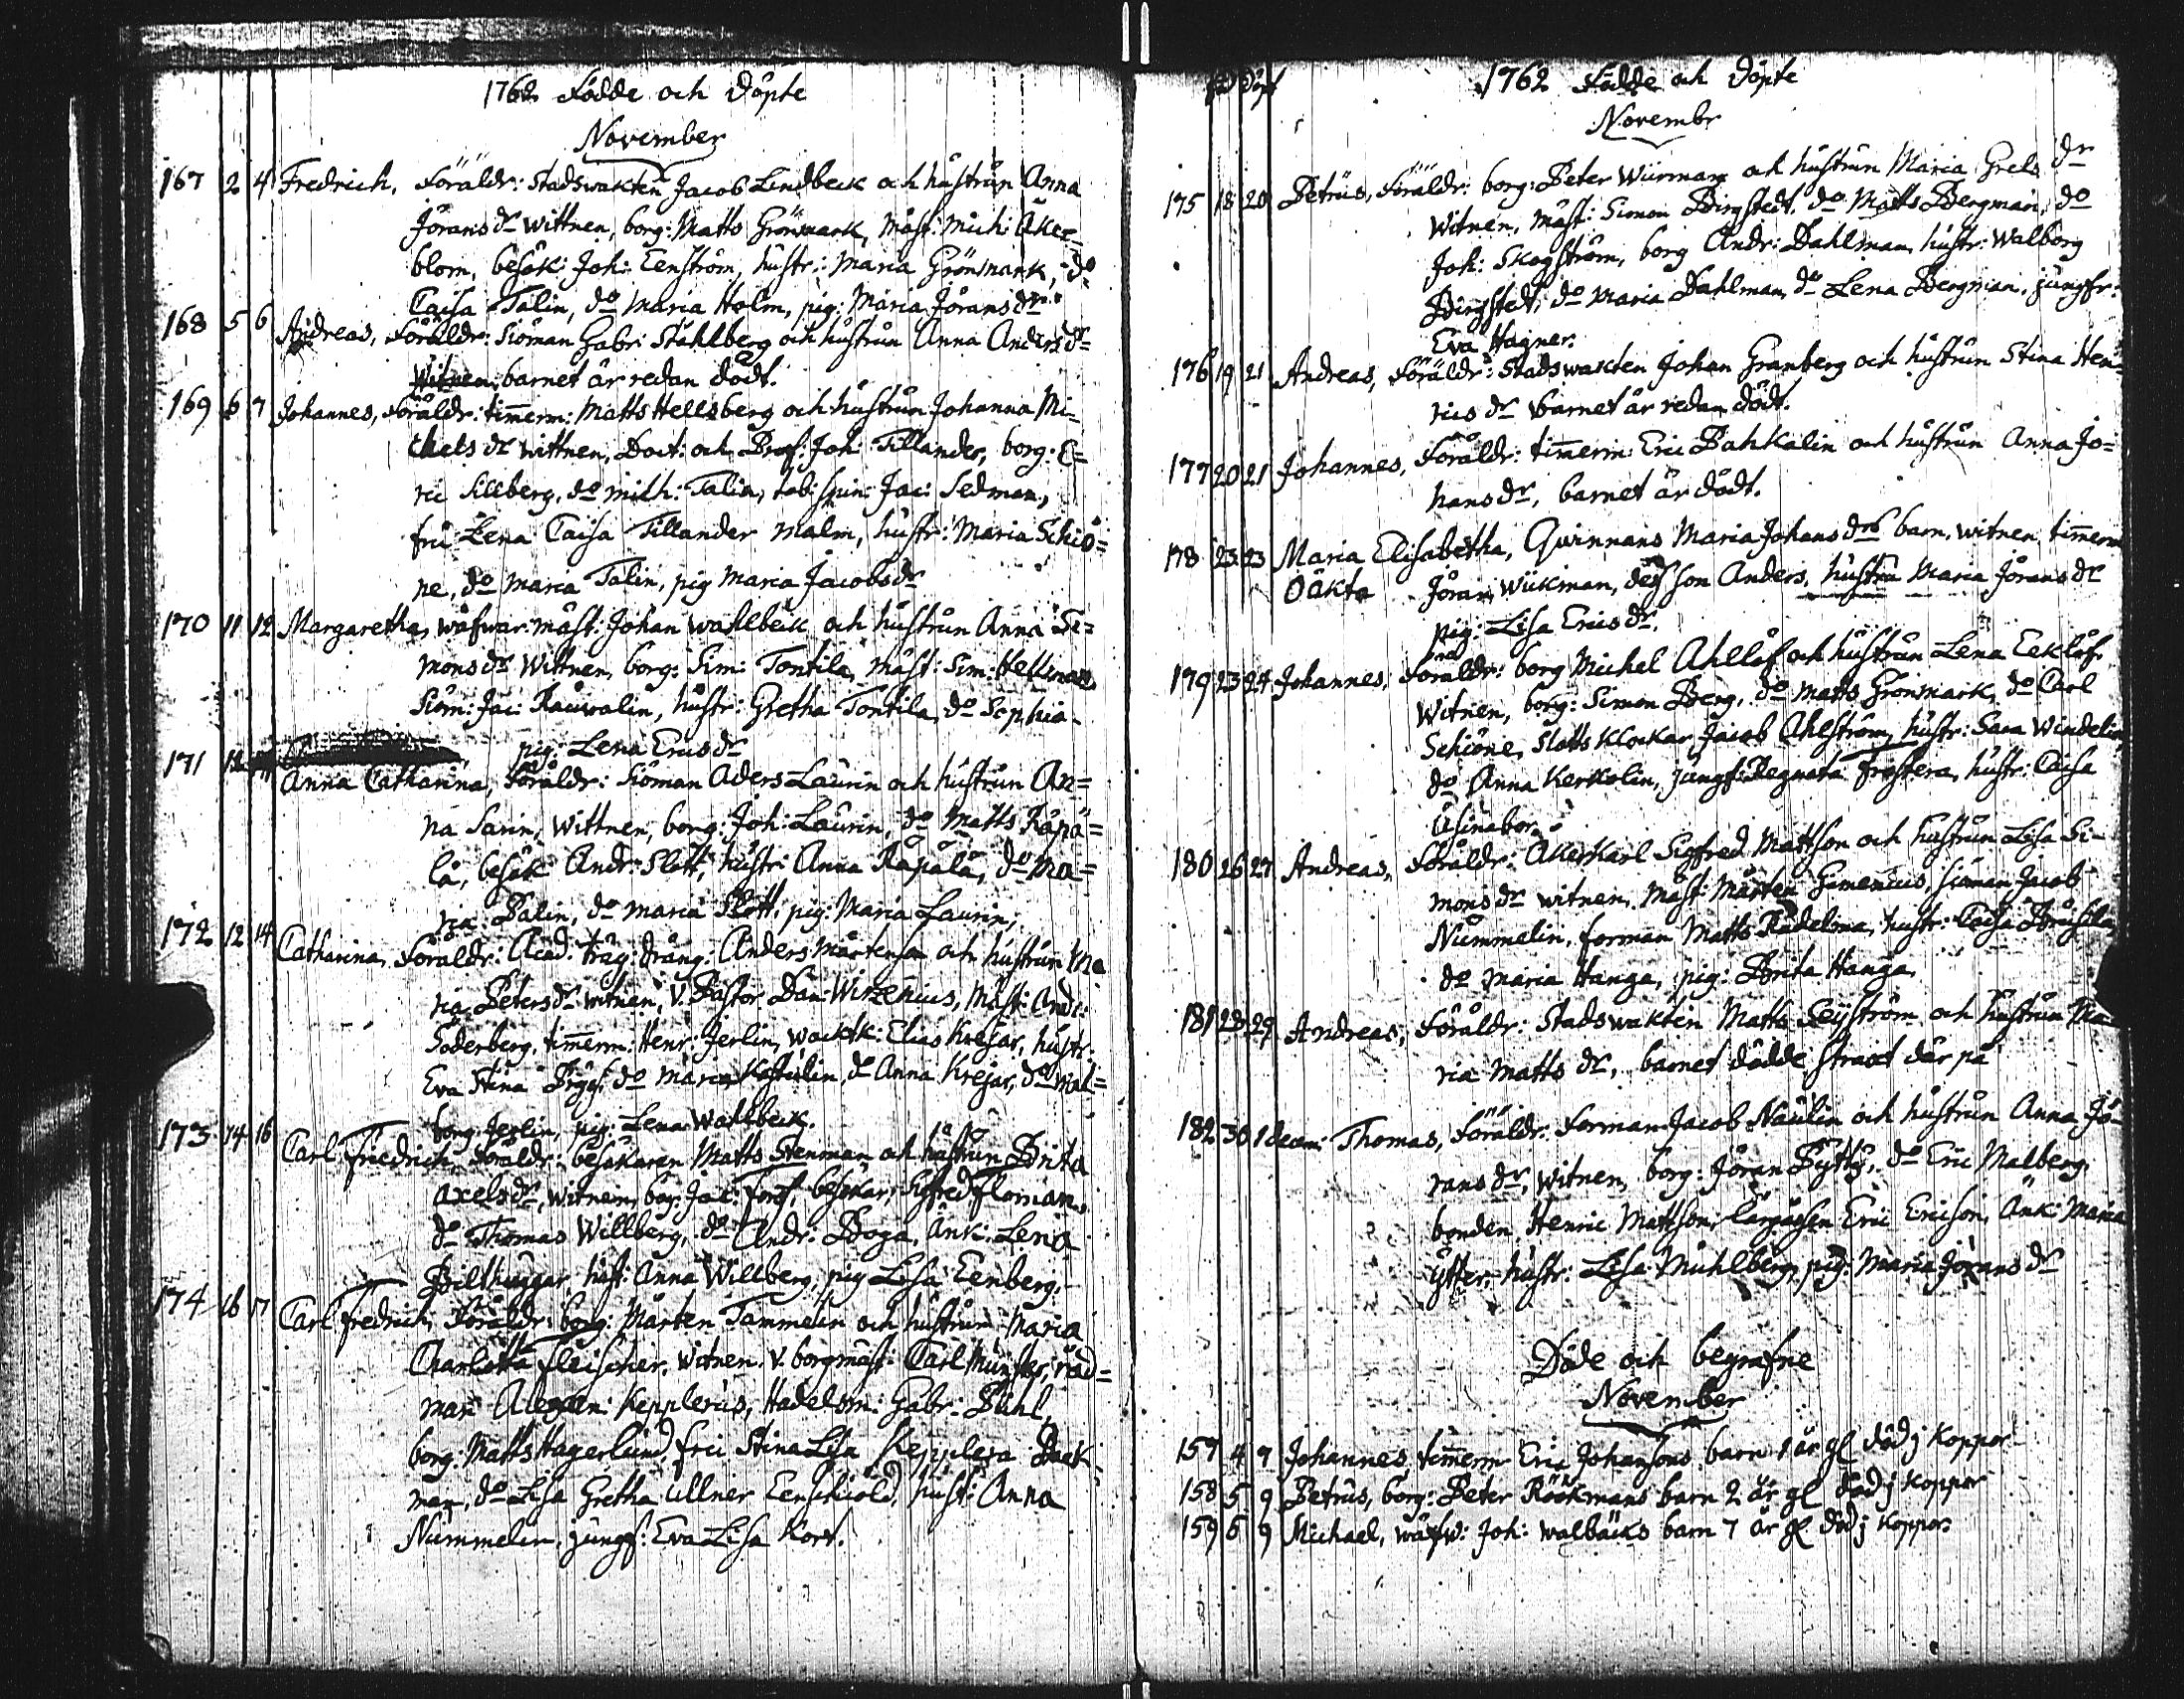 1762 Födde och döpte
November
167 2 4 Fredrich, Föräldr: Stadswakten Jacob Lindbeck och hustrun Anna
Jörans dr wittnen, borg: Matts Grönmark, mäst: Mich: Åker-
blom, besök: Joh: Eenström, hustr: Maria Grönmark, do
Caisa Talin, do Maria Holm, pig: Maria Jörans dr
168 5 6 Andreas, Föräldr: Siöman Gabr: Ståhlberg och hustrun Anna Anders dr
Witnen, barnet är redan dödt.
169 6 7 Johannes, Föräldr: timerm: Matts Hellsberg och hustrun Johanna Mi-
chels dr wittnen, Doct: och Prof: Joh: Tillander, borg: E=
ric Sillberg, do Mich: Talin, tob: spin: Jac: Sedman,
fru Lena Caisa Tillander Malm, hustr: Maria Schiö=
ne, do Maria Talin, pig Maria Jacobs dr
170 11 12 Margaretha, wäfwar: mäst: Johan Wahlbeck och hustrun Anna Si=
mons dr Wittnen, borg: Sim: Tontila, mäst: Sim: Hellman
Siöm: Jac: Rauwalin, hustr: Gretha Tontila, do Sophia
pig: Lena Erics dr
171 12 Anna Catharina, Föräldr: Siöman Aders Laurin och hustrun An=
na Sarin, Wittnen, borg: Joh: Laurin, do Matts Räpä=
lä, besök Andr: Slott, hustr: Anna Räpälä, do Ma=
ria Palin, do Maria Slott, pig: Maria Laurin,
172 12 14 Catharina, Föräldr: Acad. träg: dräng: Anders Mårtenson och hustrun Ma
ria Peters dr witnen, V. Pastor Dan: Wirzenius, Mäst: Andr:
Söderberg, timerm: Henr: Jerlin, wacktk: Elias Krejar, hustr:
Eva Stina do Maria do Anna Krejar, do Wal=
borg Jerlin, pig: Lena Wahlbeck.
173 14 16 Carl Friedrich, Föräldr: besökaren Matts Stenman och hustrun Brita
Axels dr, witnen, borg: Jac: Forss besökar: Sigfred Floman,
do Thomas Willberg, do Andr: Boga, Änk: Lena
Bilthuggar, hust: Anna Willberg, pig Lisa Eenberg.
174 16 17 Carl Fredrich, Föräldr: borg: Mårten Tammelin och hustrun Maria
Charlotta Fleischer, Witnen, V. borgmäst: Carl Munster, råd=
man Kepplerus, Hadelsm: Gabr: Puhl,
borg: Matts Hagerlund, fru Stina Lisa Kepplera Bäck
man, do Lisa Gretha Ullner Eenschiöld, hust: Anna
Nummelin, jungf: Eva Lisa Kort.
1762 Födde och döpte
Novembr
175 18 20 Petrus, Föräldr: borg: Peter Wiirman och hustrun Maria Grels dr
Witnen, mäst: Simon Birgstedt, do Matts Bergman, do
Joh: Skogström, borg Andr: Dahlman, hustr: Walborg
Birgstedt, do Maria Dahlman, do Lena Bergman, jungfr:
Eva Hagner.
176 19 21 Andreas, Föräldr: Stadswakten Johan Granberg och hustrun Stina Hen-
rics dr barnet är redan dödt.
177 20 21 Johannes, Föräldr: timerm: Eric Pahkalin och hustrun Anna Jo=
hans dr, barnet är dödt.
178 23 23 Maria Elisabetha, Qwinnans Maria Johans drs barn, witnen, timerm
Oäkta Jöran Wiikman, dess son Anders, hustru Maria Jörans dr
pig: Lisa Erics dr.
179 23 24 Johannes, Föräldr: borg Michel Ahllöf och hustrun Lena Eeklöf,
Witnen, borg: Simon Berg, do Matts Grönmark, do Carl
Schiöne, Slotts Klockar Jacob Ahlström, hustr: Sara Windelin
do Anna Kerkolin, jungf: Regnata Frostera, hustr: Caisa
Usinabor
180 26 27 Andreas, Föräldr: Åkerkarl Sigfred Mattson och hustrun Lisa Si-
mons dr witnen, Mäst: Mårten Gumenius, siöman Jacob
Nummelin, forman Matts Rädelma, hustr: Caisa
do Maria Hanga, pig: Brita Hanga.
181 28 29 Andreas, Föräldr: Stadswakten Matts Seijström och hustrun Ma
ria Matts dr, barnet dödde straxt där på
182 30 1 decem: Thomas, Föräldr: Forman Jacob Naulin och hustrun Anna Jö-
rans dr, witnen, borg: Jöran Pytty, do Eric Malberg
bonden Henric Mattson, Eric Ericson, Änk: Maria
Ytter, hustr: Lisa Muhlberg, pig: Maria Jörans dr
Döde och begrafne
November
157 4 7 Johannes, timerm Eric Johansons barn 1 år gl död j Koppor
158 5 9 Petrus, borg: Peter Röökmans barn 2 år gl död j Koppor
159 6 9 Michael, wäfw: Joh: Walbäcks barn 7 år gl död j Koppor